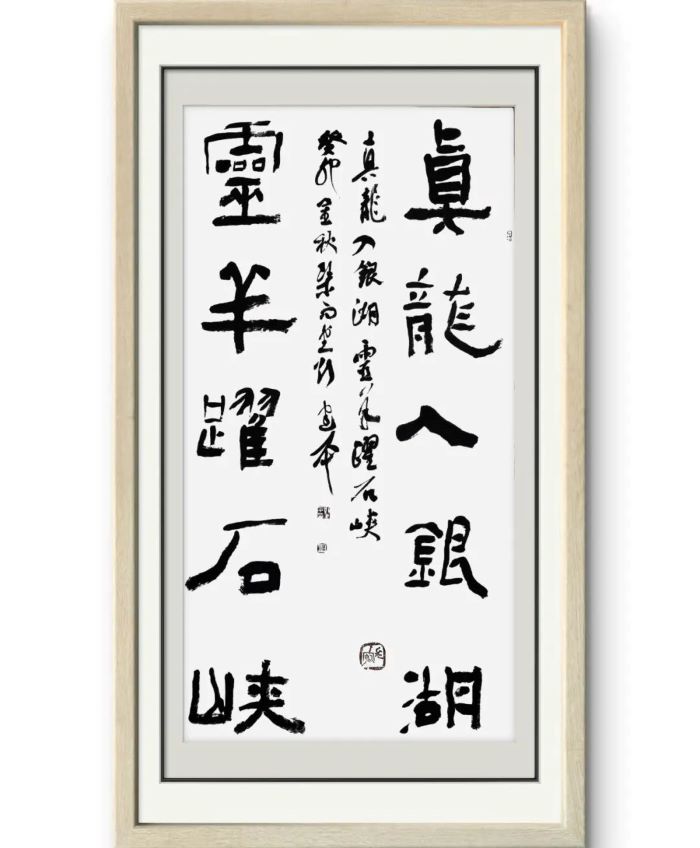 真龍入銀湖
真龍入銀湖靈羊躍石峽
癸卯金秋
靈羊躍石峽